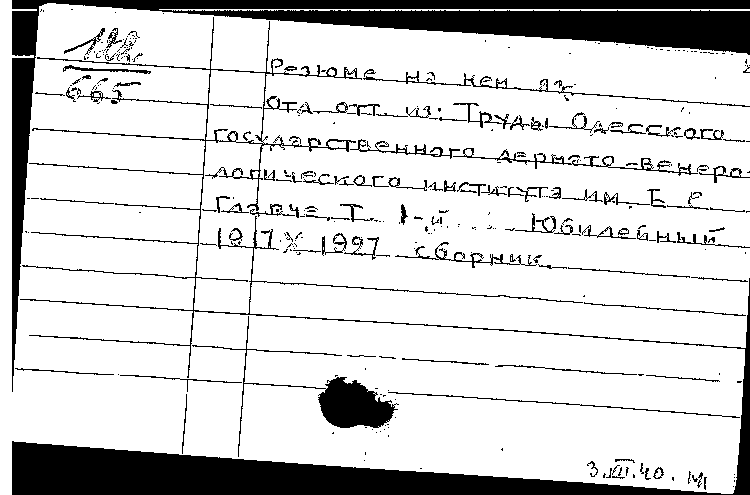 665
Резюме на нем. яз.
Отд. отт. из: Труды Одесского
государственного дермато-венеро-
логического института им. Е. С.
Главче. Т. 1-й. Юбилейный
1917 X 1927 сборник.
3.VII.40. М